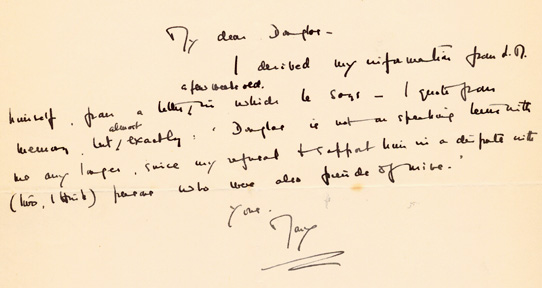 My dear Douglas -
I derived my information from
a few weeks old.
himself, from a letter, in which he says - I quote from
almost
memory, but, exactly: 'Douglas is not on speaking terms with
me any longer, since my refusal to support him in a dispute with
(two, I think) persons who were also friends of mine.'
Yours.